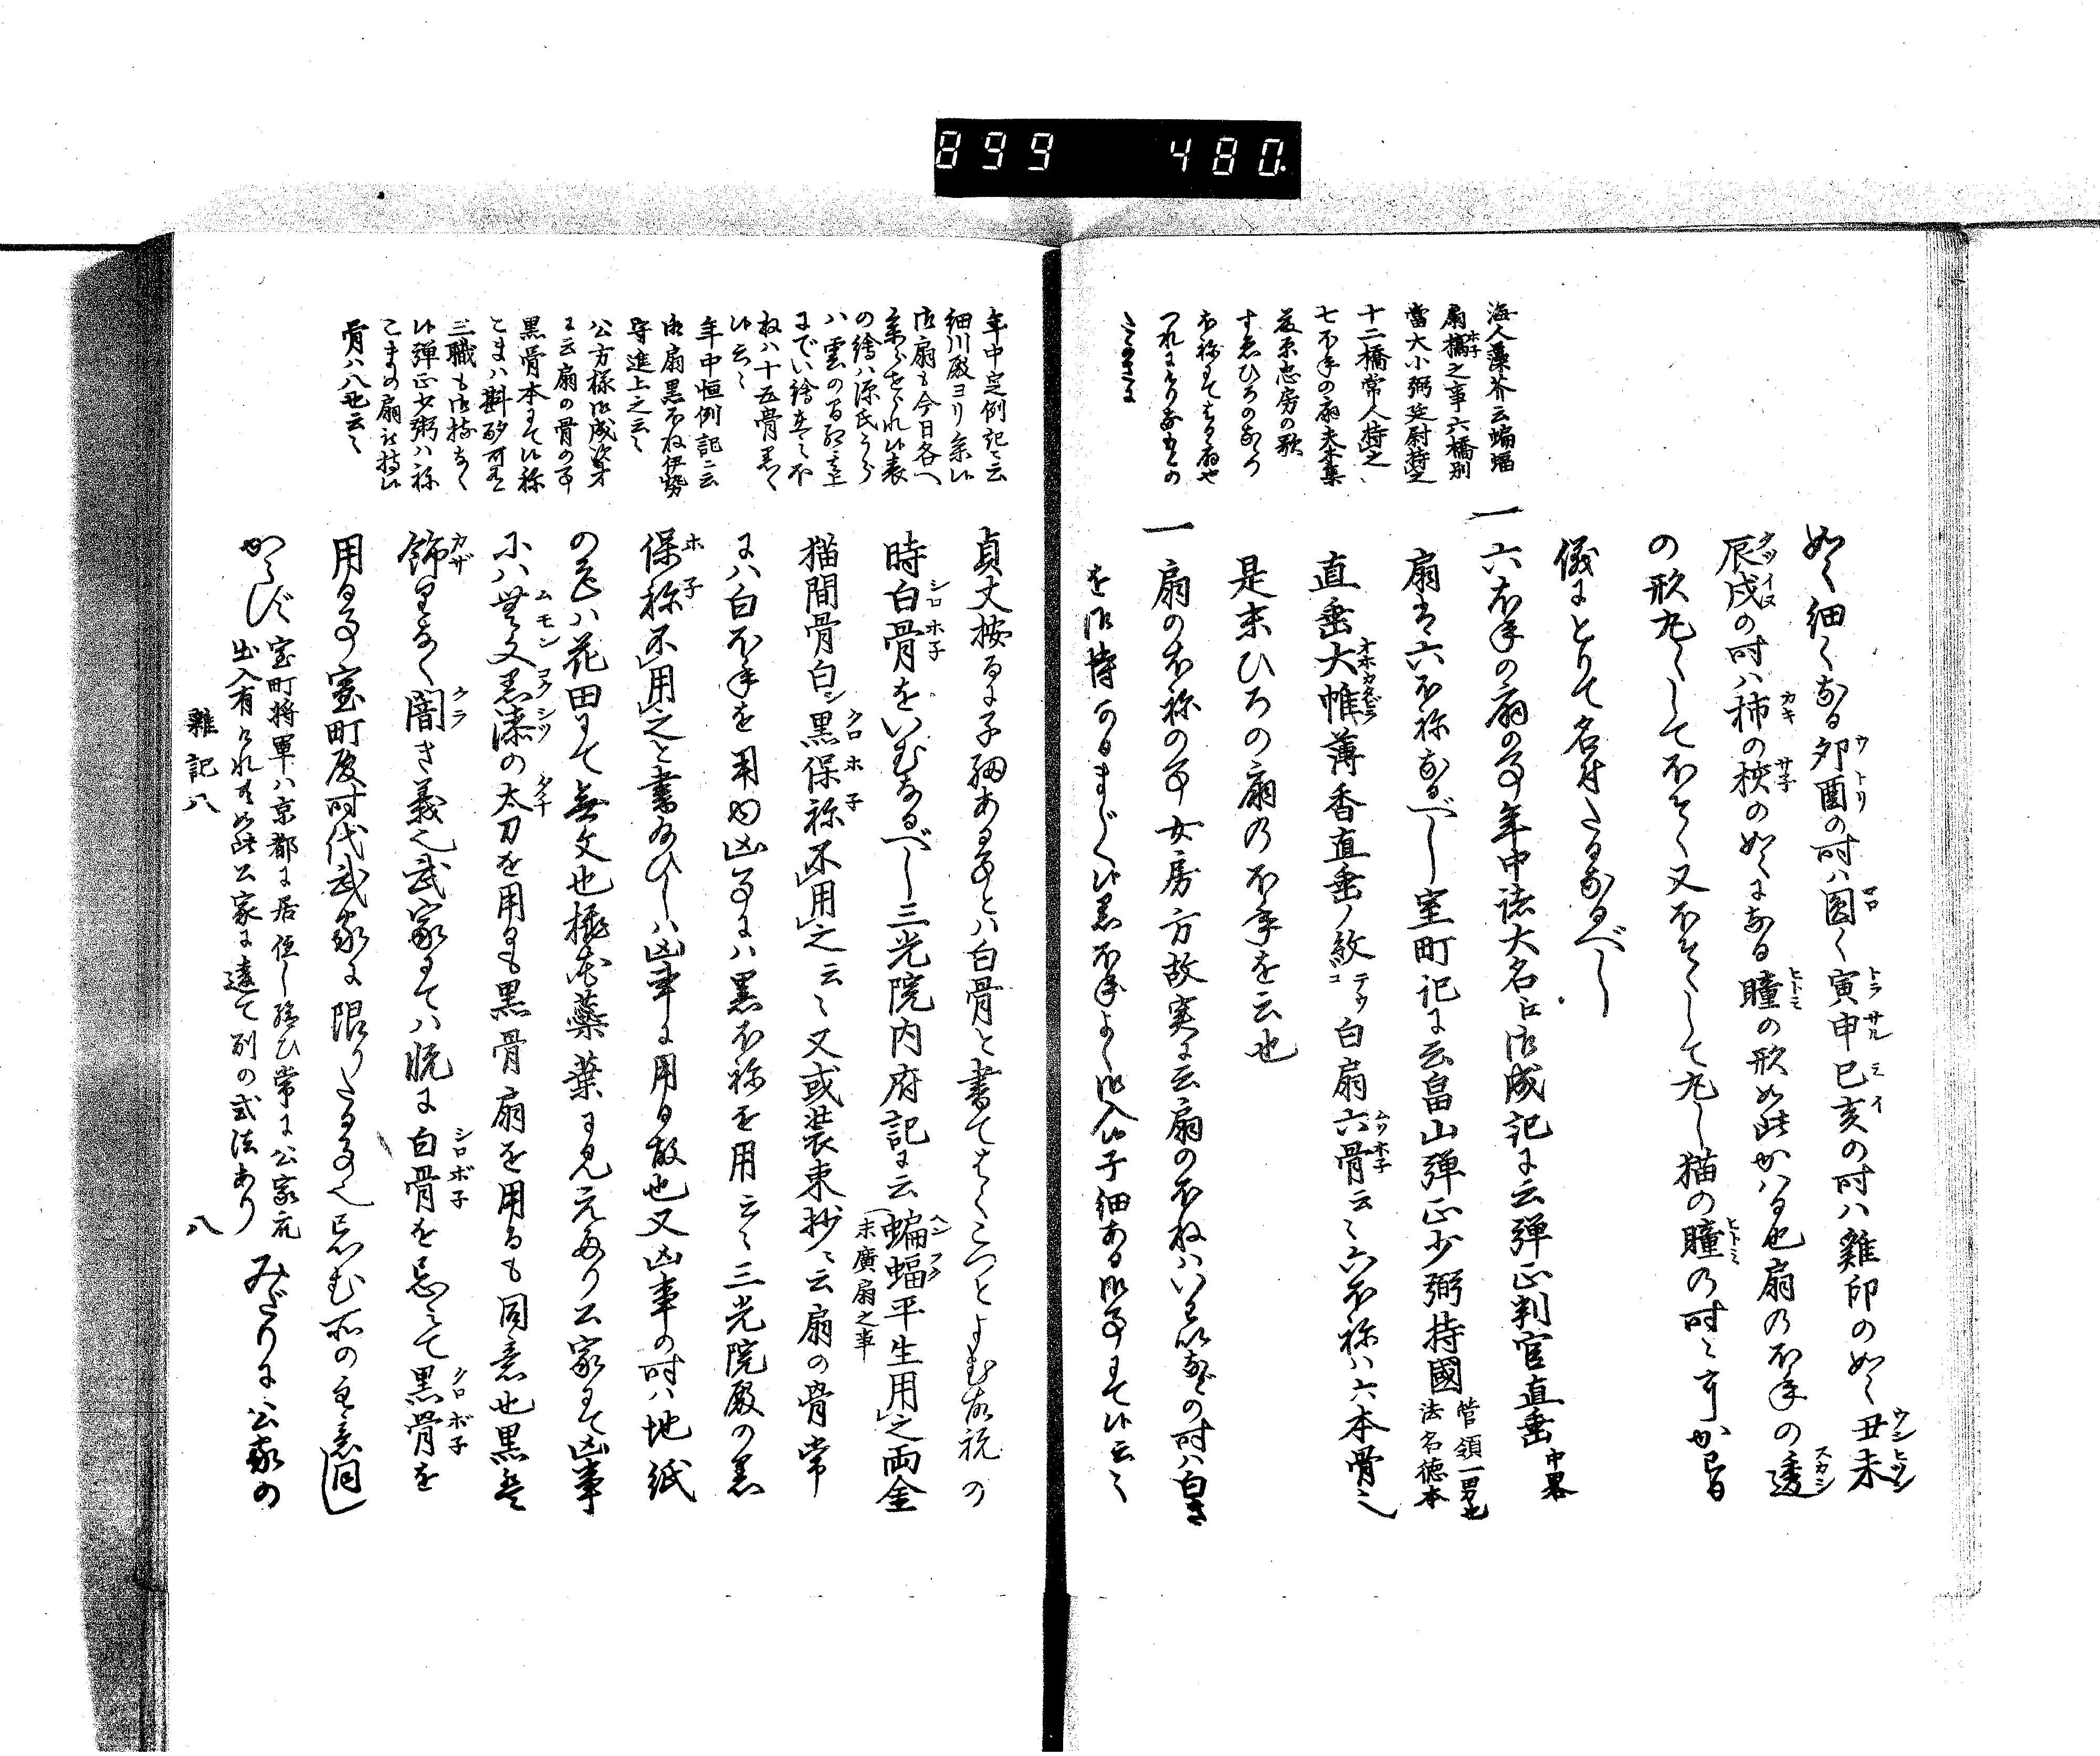 899 480.
海人藻芥云蝙蝠
扇橋之事六橋別
當大小弼延尉持之
十二橋常人持之
七ホ子の扇夫木集
藤原忠房の歌
すゑひろの
ほねにて
つれにそ
如く細くなる卯酉の時ハ圓く寅申巳亥の時ハ雞卵の如く丑未
辰戌の時ハ柿の核の如くになる瞳の形如此かハる也扇のほ子の透
の形丸くしてほそく又ほそくして丸し猫の瞳の時々
儀にとりて名付たるなるべし
一六ほ子の扇の事年中諸大名江御成記に云弾正判官直垂中畧
扇ハ六ほ祢なるべし室町記に云畠山弾正少弼持國管領一男也法名徳本
直垂大帷薄香直垂ノ紋白扇六骨云々六ほ祢ハ六本骨也
是末ひろの扇のほ子を云也
一扇のほ祢の事女房方故実に云扇のほねハいはゐなどの時ハ白き
を御持あるまじく候黒ほ子よく御入候子細ある御事にて候云々
年中定例記云
細川殿ヨリ参候
御扇も今日各へ
参らせられ候表
の繪ハ源氏
ハ雲の
にでい繪
ねハ十五骨黒く
候云々
年中恒例記ニ云
御扇黒ほね伊勢
守進上之云々
公方様御成次才
に云扇の骨の事
黒骨本にて候祢
こまハ斟酌可有
三職も御持なく
候弾正少弼ハ祢
こまの扇を持候
骨ハ八也云々
貞丈按るに子細ある事とハ白骨と書てはくこつとよむ故祝の
時白骨をいむなるべし三光院内府記に云蝙蝠末廣扇之事平生用之両金
猫間骨白シ黒保祢不用之云々又或装束抄ニ云扇の骨常
にハ白ほ子を用由凶事にハ黒ほ祢を用云々三光院殿の黒
保祢不用之と書給ひしハ凶事に用る故也又凶事の時ハ地紙
の色ハ花田にて無文也桃花蘂葉に見えたり公家にて凶事
にハ無文黒漆の太刀を用るも黒骨扇を用るも同意也黒は
飾りなく闇き義也武家にてハ祝に白骨を忌て黒骨を
用る事室町殿時代武家に限りたる事也忌む所の主意同し
からず室町将軍ハ京都に居住し給ひ常に公家衆出入有けれども如此公家に違て別の式法ありみだりに公家の
雑記八 八